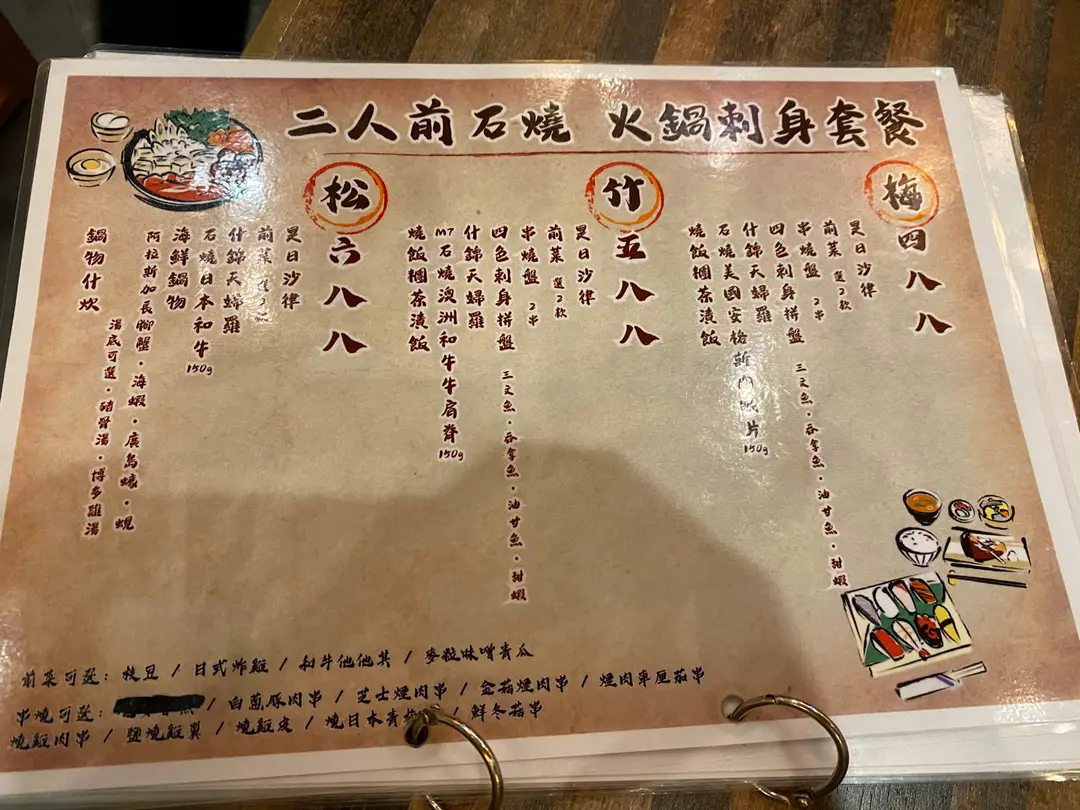 二人前石燒 火鍋刺身套餐
梅
四八八
是日沙律
前菜 選2款
串燒盤 2串
四色刺身拼盤
三文魚·吞拿魚·油甘魚·甜蝦
什錦天婦羅
石燒美國安格斯肉眼片 150g
燒飯糰茶漬飯
竹
五八八
是日沙律
前菜 選2款
串燒盤 2串
四色刺身拼盤
三文魚·吞拿魚·油甘魚·甜蝦
什錦天婦羅
M7石燒澳洲和牛牛肩脊 150g
燒飯糰茶漬飯
松
六八八
是日沙律
前菜 選2款
什錦天婦羅
石燒日本和牛 150g
海鮮鍋物
阿拉斯加長腳蟹·海蝦·廣島蠔·蜆
湯底可選·豬骨湯·博多雞湯
鍋物什炊
前菜可選：枝豆 / 日式炸雞 / 和牛他他其 / 麥粒味噌青瓜
串燒可選： / 白蔥豚肉串 / 芝士煙肉串 / 金菇煙肉串 / 煙肉車厘茄串
燒雞肉串 / 鹽燒雞翼 / 燒雞皮 / 燒日本青 / 鮮冬菇串